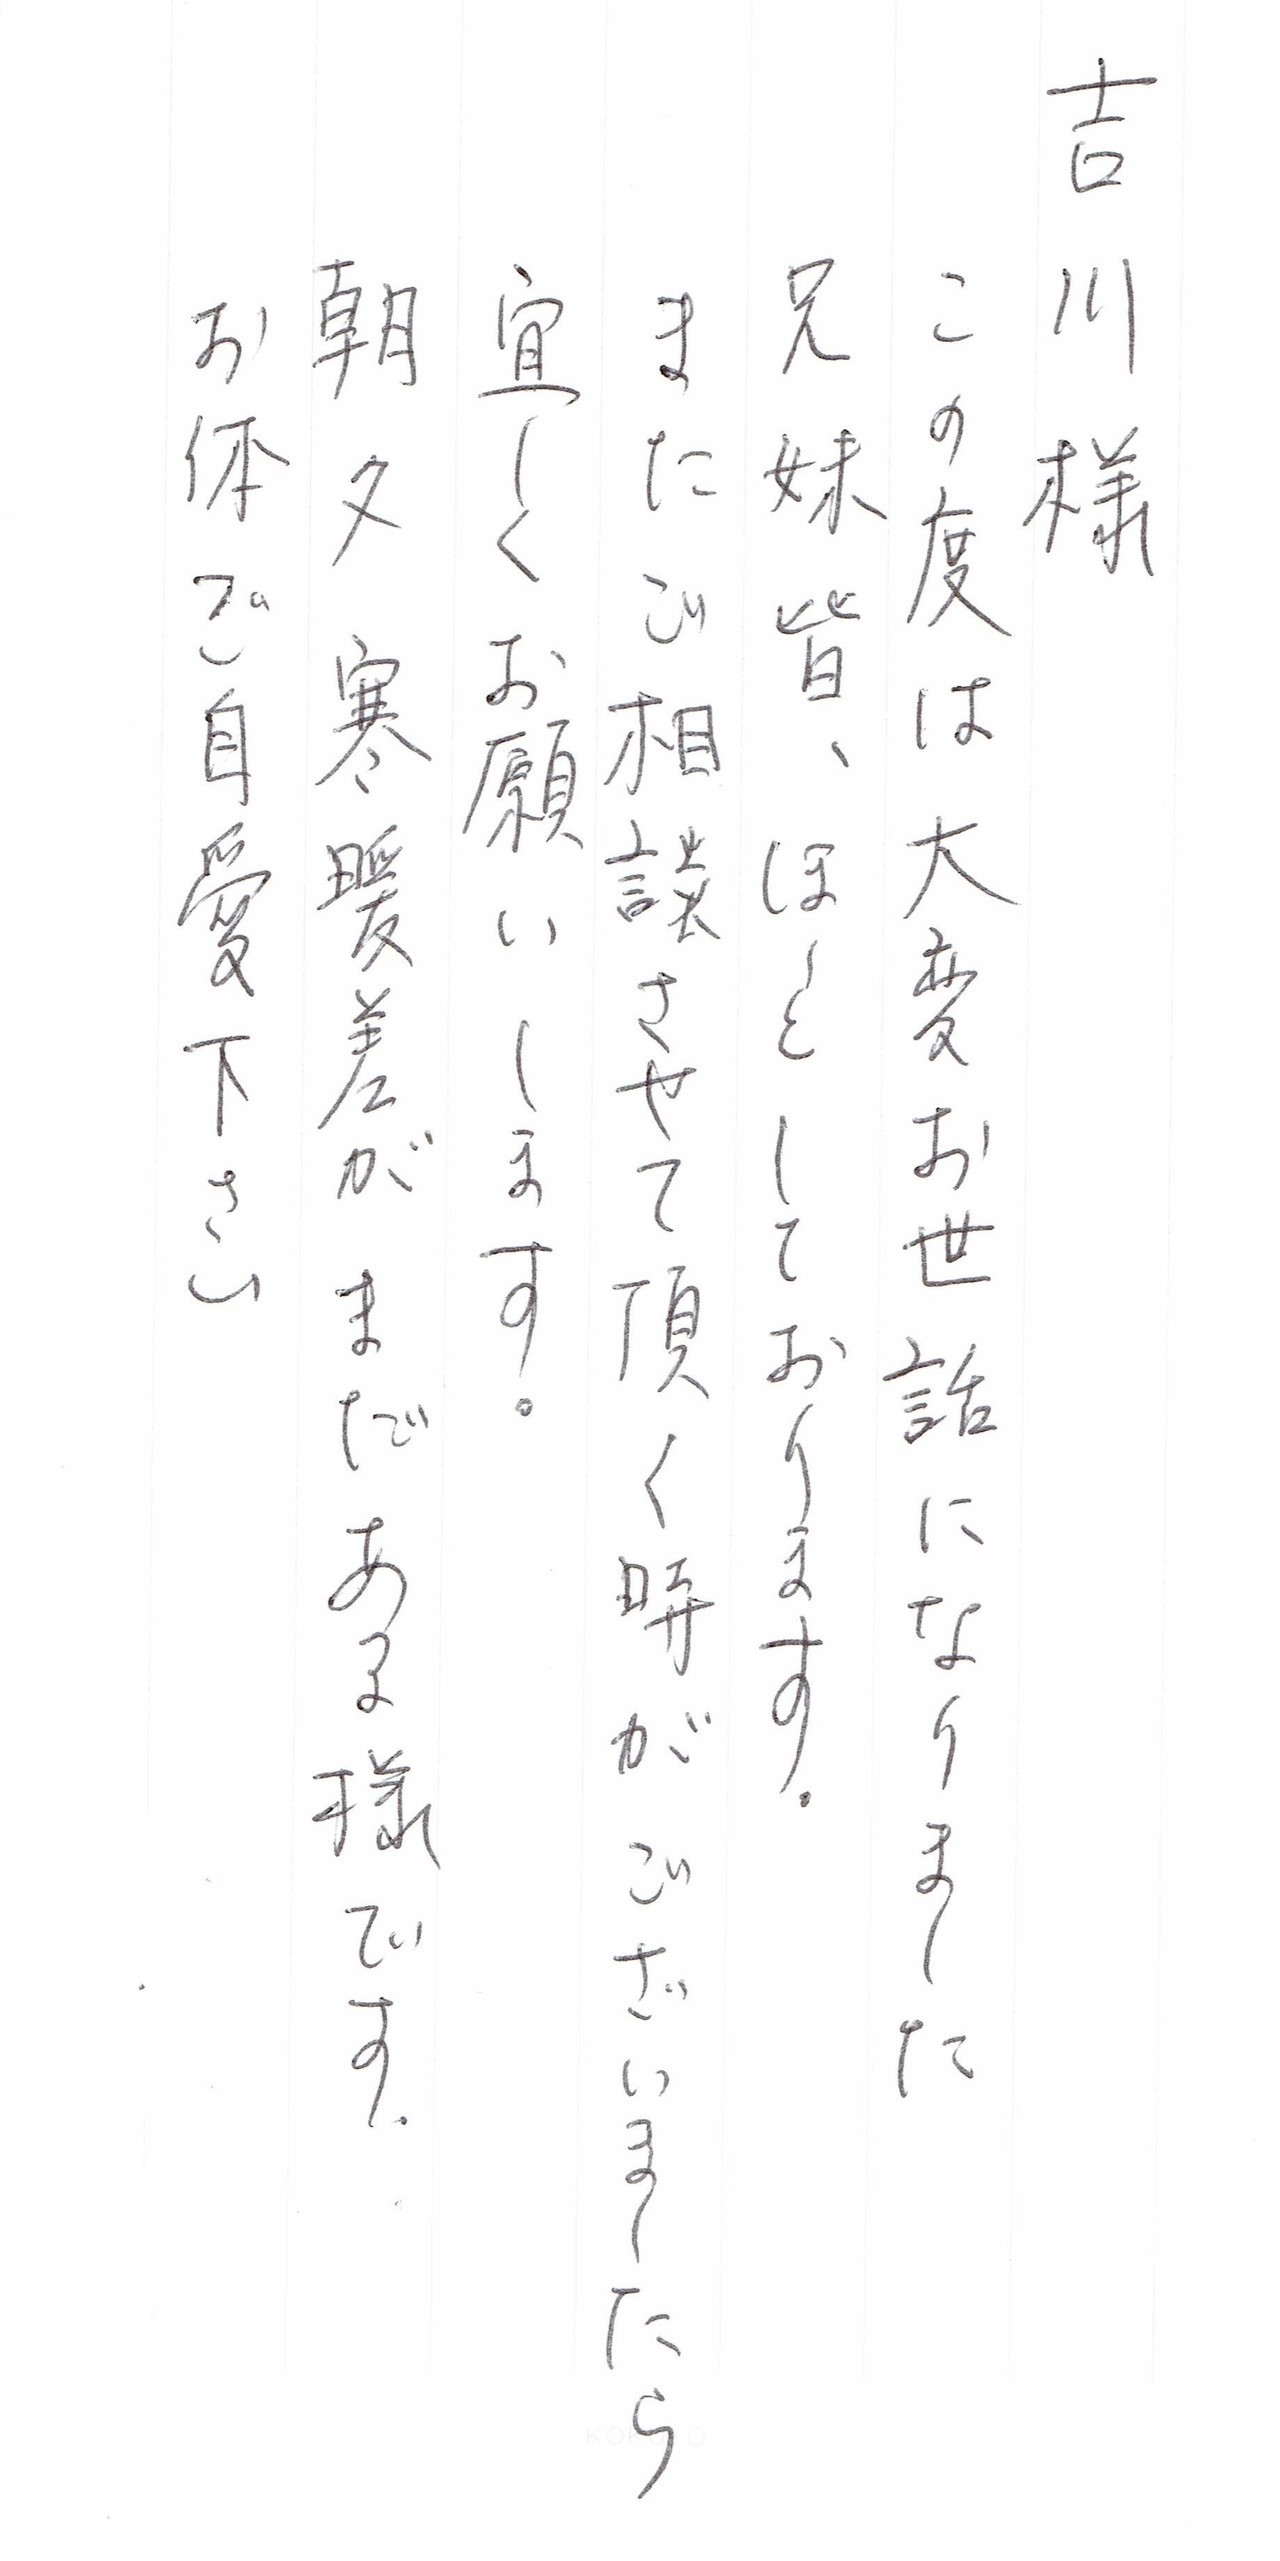 吉川様
この度は大変お世話になりました
兄妹皆、ほっとしております。
またご相談させて頂く時がございましたら
宜しくお願いします。
朝夕寒暖差がまだある様です。
お体ご自愛下さい
KOKUYO